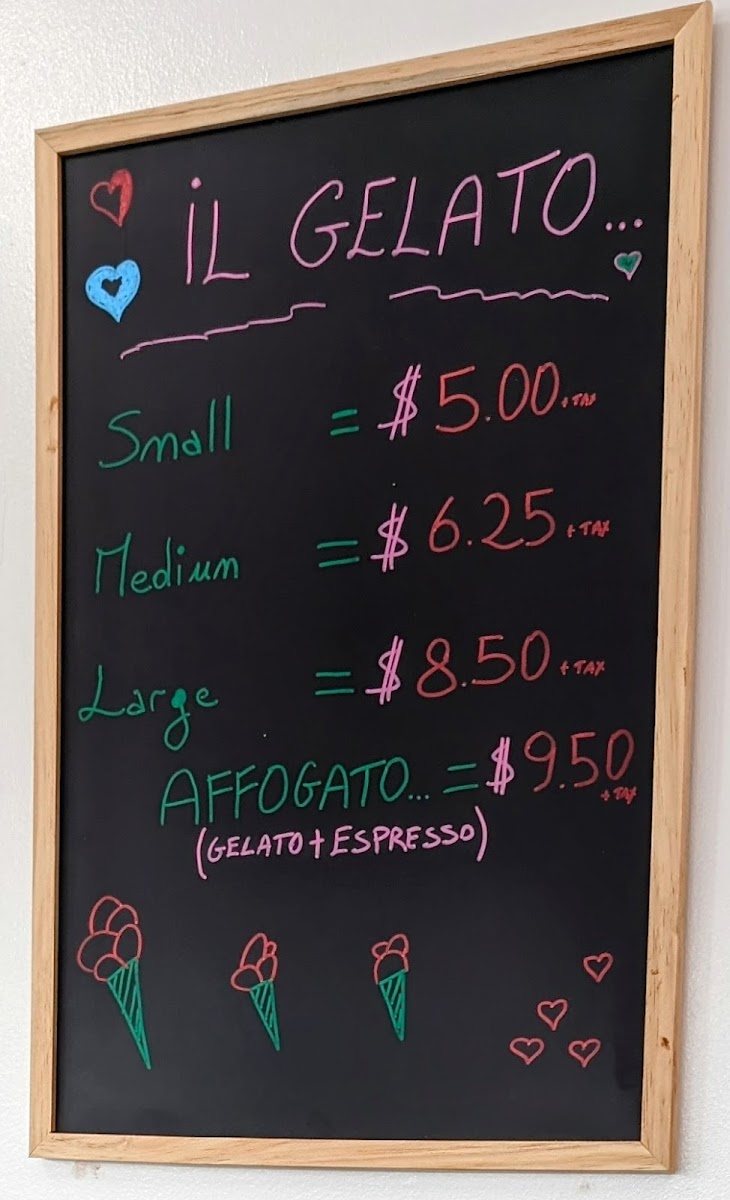 iL GELATO...
Small = $5.00 + TAX
Medium = $6.25 + TAX
Large = $8.50 + TAX
AFFOGATO... = $9.50 + TAX
(GELATO + ESPRESSO)